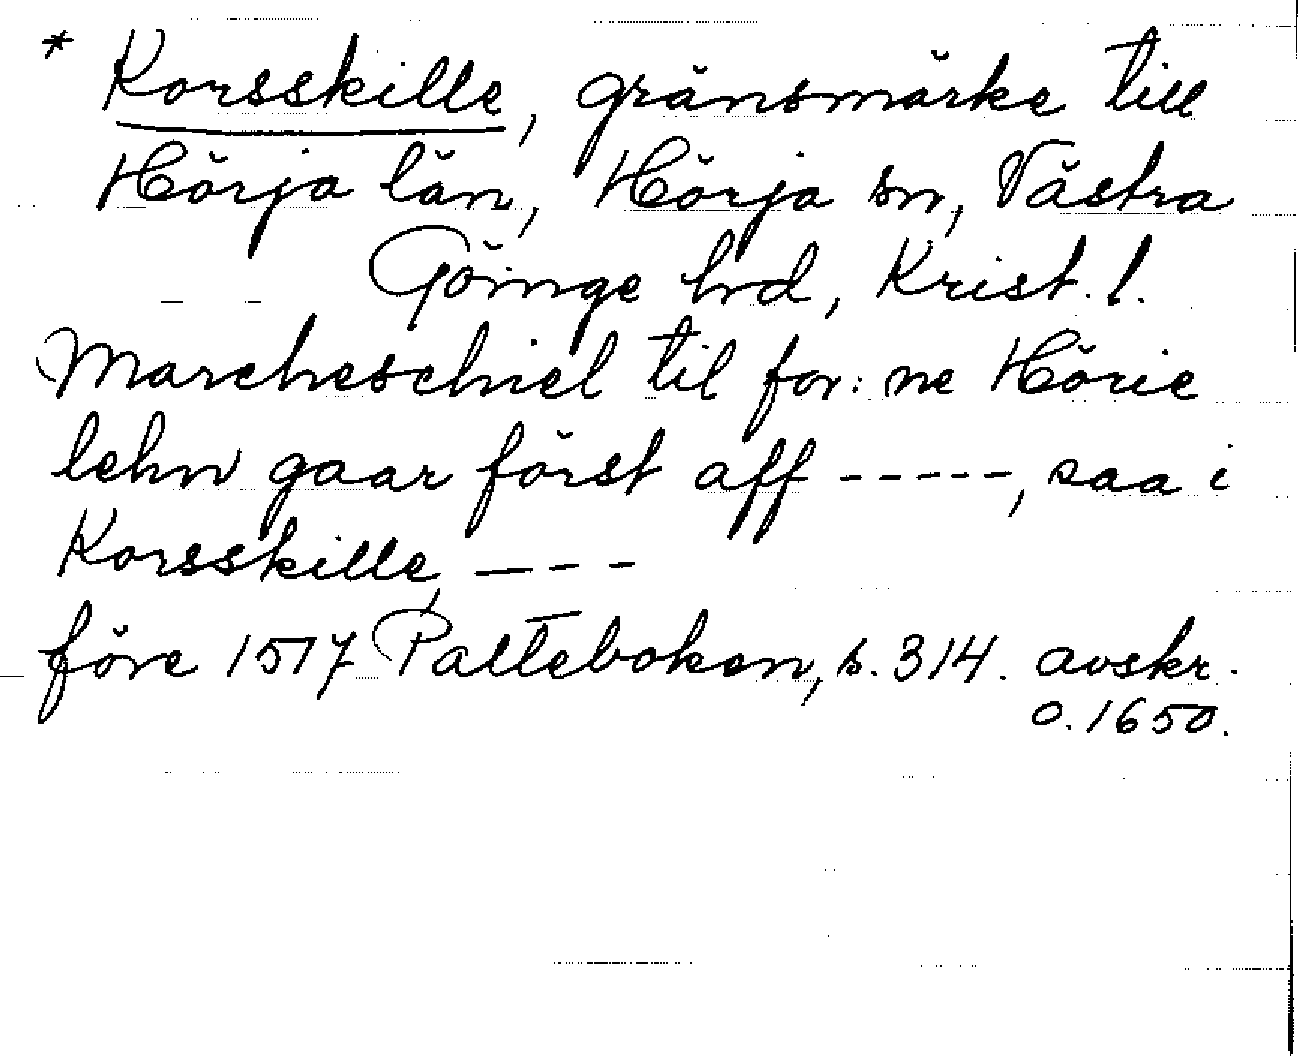 * Korsskille, gränsmärke till
Hörja län, Hörja sn, Västra
Göinge hrd, Krist. l.
Marcheschiel til for: ne Hörie
lehn gaar först aff -----, saa i
Korsskille, ---
före 1517 Palteboken, s. 314. avskr.
o. 1650.